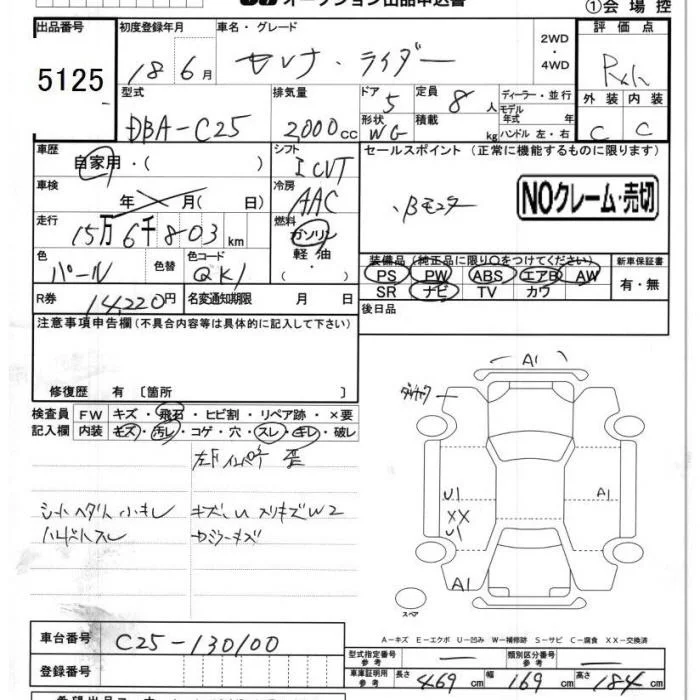 オークション出品申込書
①会場控
出品番号 初度登録年月 車名・グレード 評価点
5125 18 6月 セレナ・ライダー 2WD・4WD
型式 排気量 ドア 5 定員 8人 ディーラー・並行 外装 内装
モデル年式 年
DBA-C25 2000cc 形状 WG 積載 kg ハンドル 左・右 C C
車歴 自家用・( ) シフト ICVT セールスポイント (正常に機能するものに限ります)
車検 年 月( 日) 冷房 AAC NOクレーム・売切
走行 15万6千803km 燃料 ガソリン・軽油・( )
色 パール 色替 色コード QK1 装備品 (純正品に限り〇をつけてください) 新車保証書
PS PW ABS エアB AW 有・無
SR ナビ TV カワ
R券 14,220円 名変通知期限 月 日 後日品
注意事項申告欄(不具合内容等は具体的に記入して下さい)
修復歴 有 〔箇所 〕
検査員 FW キズ・飛石・ヒビ割・リペア跡・×要
記入欄 内装 キズ・汚レ・コゲ・穴・スレ・キレ・破レ
A1
U1
XX
U1
A1
A1
スペア
A-キズ E-エクボ U-凹み W-補修跡 S-サビ C-腐食 XX-交換済
車台番号 C25-130100
登録番号
型式指定番号 参考 類別区分番号 参考
車庫証明用 参考 長さ 469cm 幅 169cm 高さ 184cm